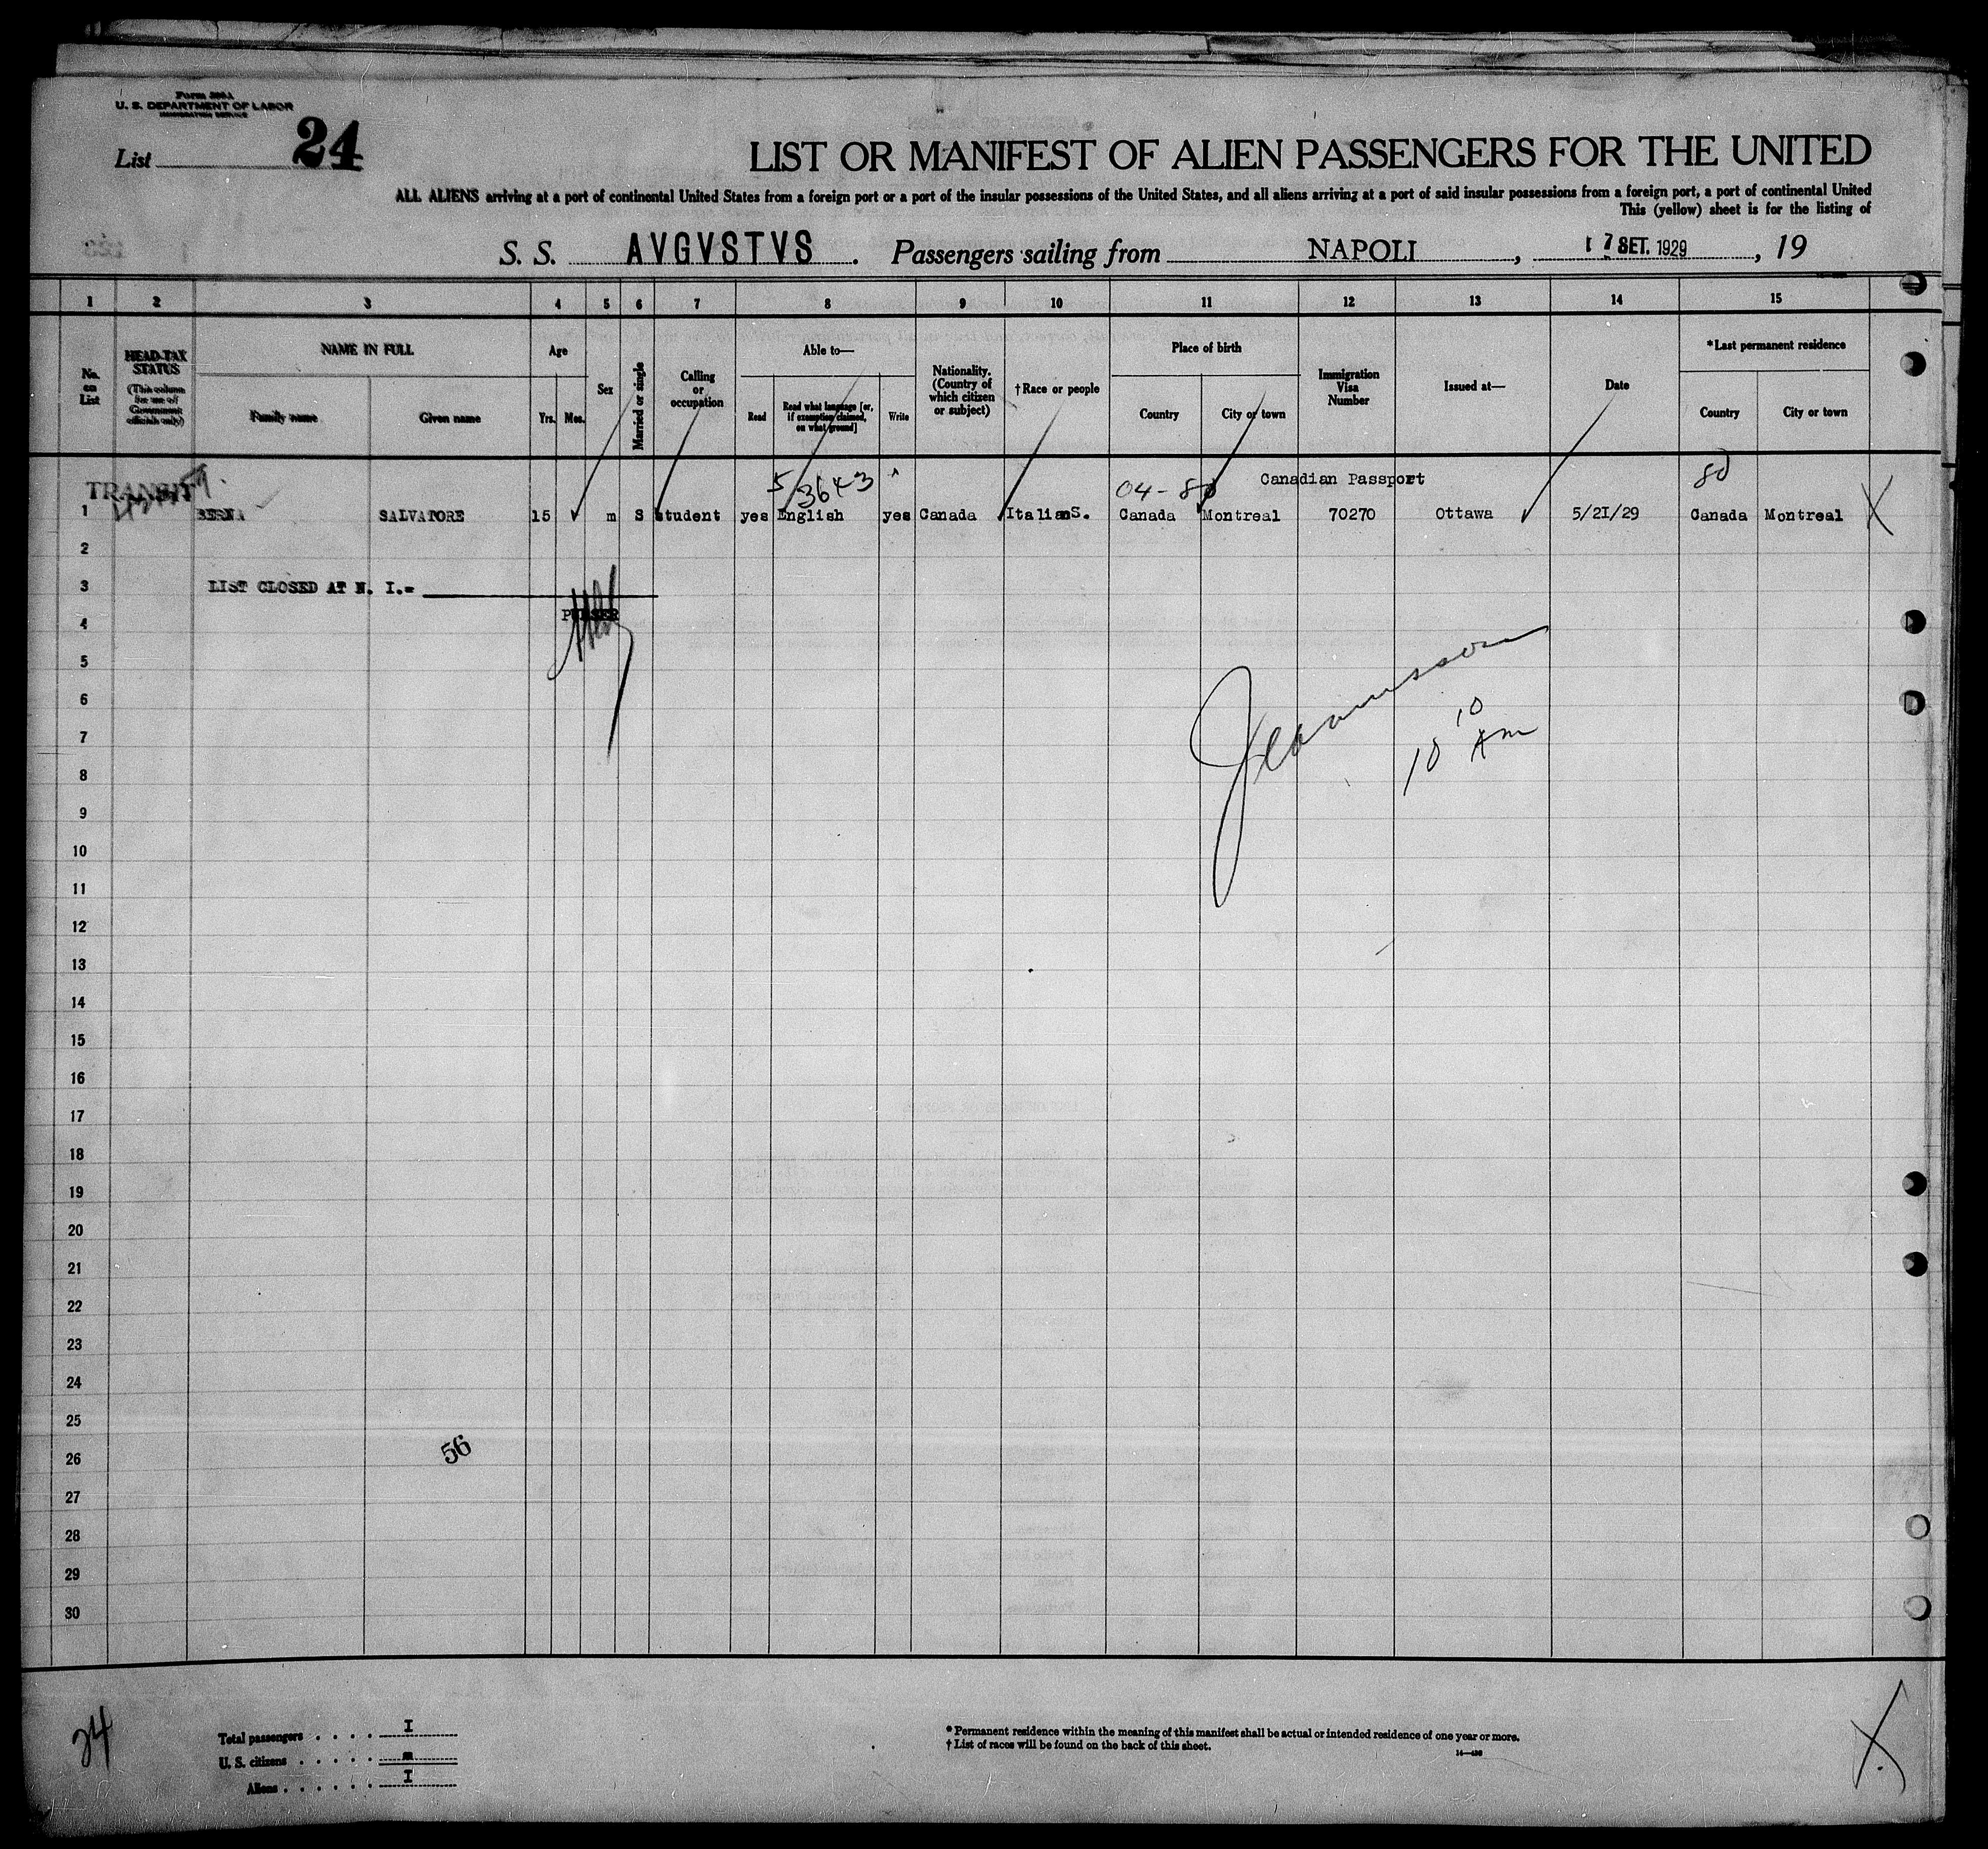 Form 500A
U. S. DEPARTMENT OF LABOR
IMMIGRATION SERVICE
List 24
LIST OR MANIFEST OF ALIEN PASSENGERS FOR THE UNITED
ALL ALIENS arriving at a port of continental United States from a foreign port or a port of the insular possessions of the United States, and all aliens arriving at a port of said insular possessions from a foreign port, a port of continental United
This (yellow) sheet is for the listing of
S. S. AVGVSTVS . Passengers sailing from NAPOLI , 17 SET. 1929 , 19
1 2 3 4 5 6 7 8 9 10 11 12 13 14 15
No. on List
HEAD-TAX STATUS
(This column for use of Government officials only)
NAME IN FULL
Family name Given name
Age
Yrs. Mos.
Sex
Married or single
Calling or occupation
Able to—
Read
Read what language [or, if exemption claimed, on what ground]
Write
Nationality. (Country of which citizen or subject)
† Race or people
Place of birth
Country City or town
Immigration Visa Number
Issued at—
Date
*Last permanent residence
Country City or town
TRANSIT 5/3643 04-80 Canadian Passport 80
1 BERNA SALVATORE 15 m S student yes English yes Canada Italian S. Canada Montreal 70270 Ottawa 5/2I/29 Canada Montreal X
2
3 LIST CLOSED AT N. I.=
PURSER
4
5
6
7
10 10 AM
8
9
10
11
12
13
14
15
16
17
18
19
20
21
22
23
24
25
26
56
27
28
29
30
24
Total passengers . . . . I
U. S. citizens . . . . . =
Aliens . . . . . . I
* Permanent residence within the meaning of this manifest shall be actual or intended residence of one year or more.
† List of races will be found on the back of this sheet.
X